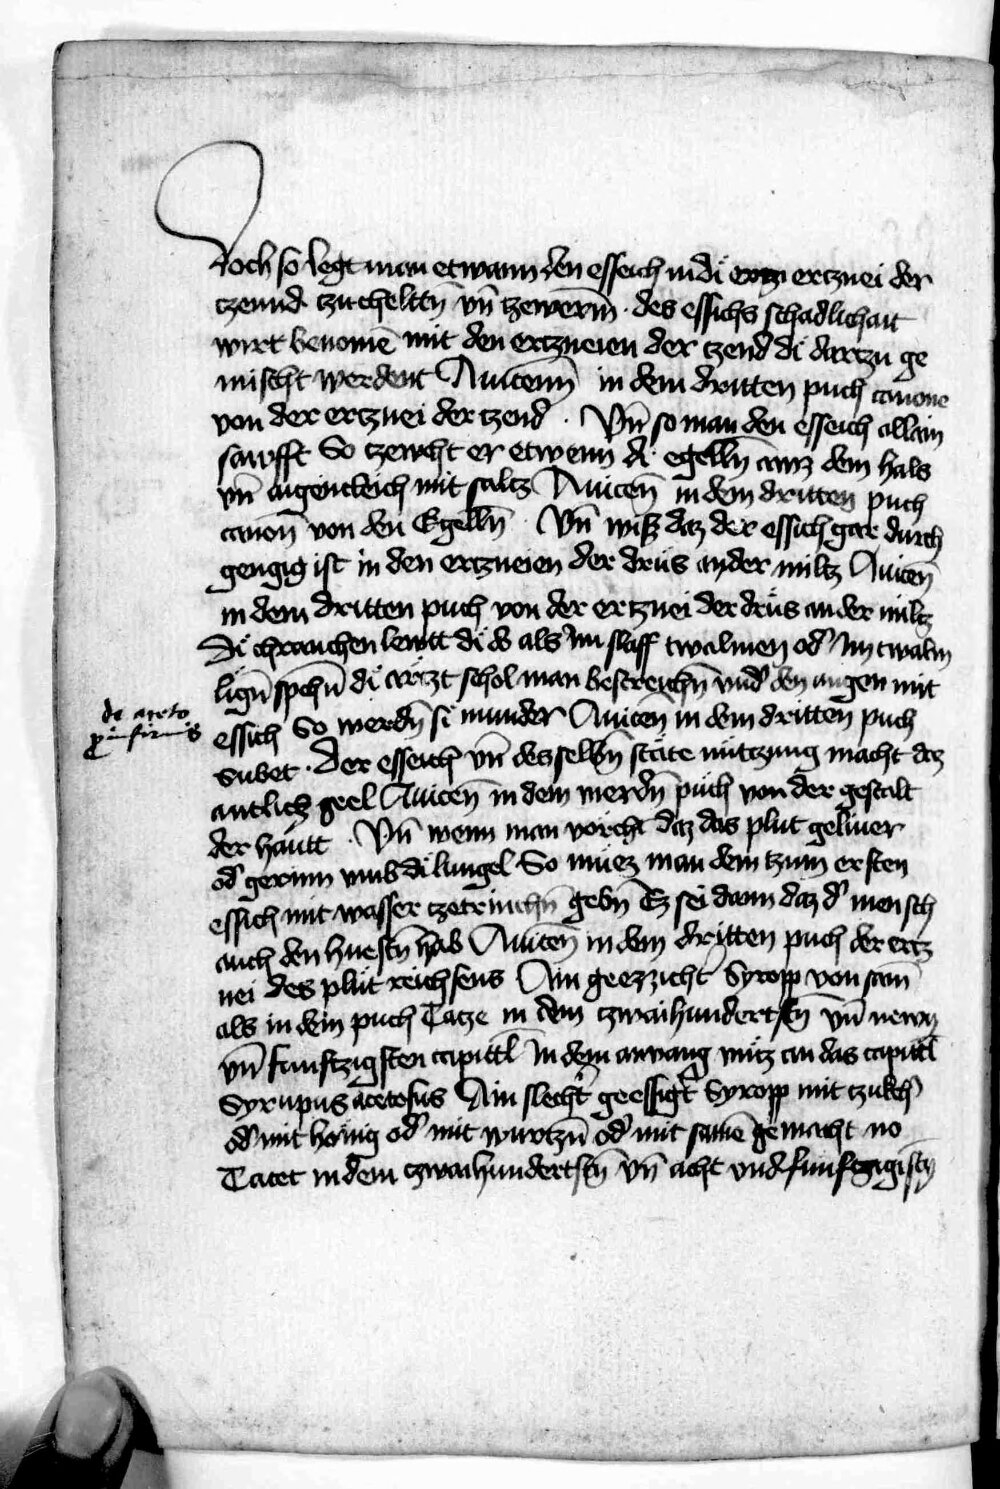 Doch so legt man etwann den esseich in di ertznei der
tzennd tzucheltt̄n vn̄ tzewerm̄ · des essichs schadlichait
wirt benomē mit den ertzneien der tzend di dartzu ge
mischt werdent Auicenn̄ in dem dritten puch canone
von der ertznei der tzend · Vn̄ so man den esseich allain
sawfft So tzewcht er etwenn di egelln̄ aws dem hals
vn̄ aigentleich mit saltz Auicen̄ in dem dritten puch
canon̄ von den Egelln̄ · Vn̄ wiss daz der essich gar durch
gengig ist in den ertzneien der drüs an der miltz Auicen̄
in dem dritten puch von der ertznei der drüs an der miltz
Di chranchen lewtt di do als im slaff twalmen od' im twalm
lign̄ spchn̄ di artzt schol man bestreichn̄ vnd' den augen mit
de aceto
p infirmis
essich So werdn̄ si munder Auicen̄ in dem dritten puch
Subet · Der esseich vn̄ desselbn̄ stäte nützung macht daz
antlitz geel Auicen̄ in dem vierdn̄ püch von der gestalt
der hautt · Vn̄ wenn man vorcht daz das plut geliuer
od' gerinn vmb di lungel So müez man dem tzum ersten
essich mit wasser tzetrinchn̄ gebn̄ Ez sei dann daz d' mensch
auch den huestn̄ hab Auicen̄ in dem dritten puch der ertz
nei des plüt reichsens Ain geezzicht' Syropp von sam̄
als in dem puch Tatze in dem tzwaihundertstn̄ vn̄ newn
vn̄ funftzigsten capittl̄ In dem anuang mitz an das capittl̄
Syrupus acetosus Ain slecht' geessigt' Syropp mit tzukch'
od' mit honig od' mit wurtzn̄ od' mit samē gemacht no
Tatet in dem tzwaihundertstn̄ vn̄ acht vnd funftzigistn̄